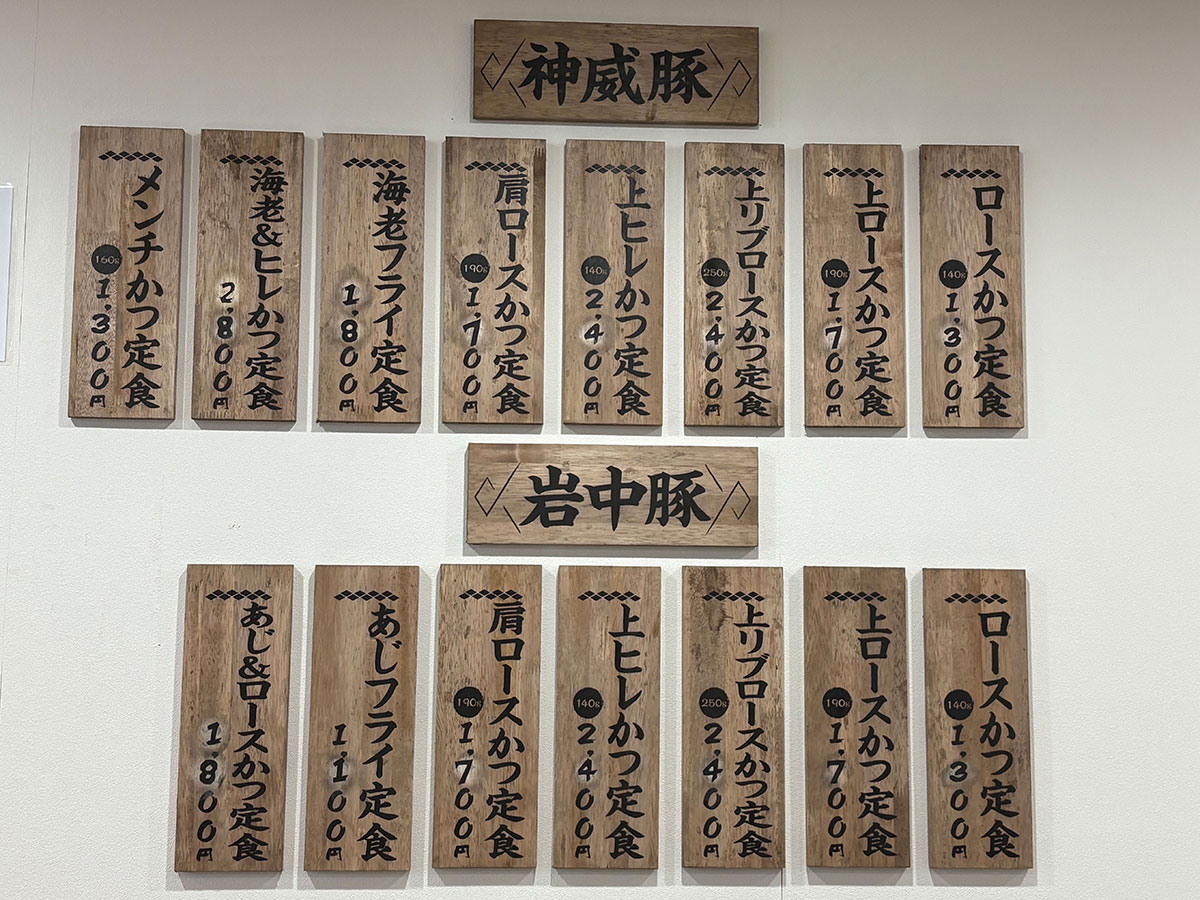 神威豚
ロースかつ定食
140g
1,300円
上ロースかつ定食
190g
1,700円
上リブロースかつ定食
250g
2,400円
上ヒレかつ定食
140g
2,400円
肩ロースかつ定食
190g
1,700円
海老フライ定食
1,800円
海老&ヒレかつ定食
2,800円
メンチかつ定食
160g
1,300円
岩中豚
ロースかつ定食
140g
1,300円
上ロースかつ定食
190g
1,700円
上リブロースかつ定食
250g
2,400円
上ヒレかつ定食
140g
2,400円
肩ロースかつ定食
190g
1,700円
あじフライ定食
1,100円
あじ&ロースかつ定食
1,800円